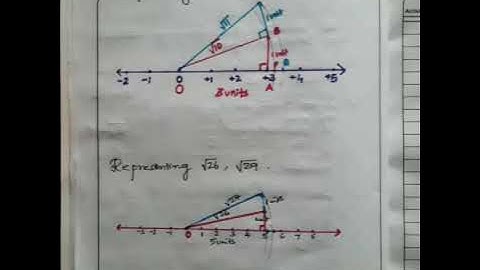 √11
1 unit
√10
B
1 unit
-2 -1 0 +1 +2 +3 P Q +4 +5
O 3 units A
Representing √26, √27.
√27
√26
-3 -2 -1 0 1 2 3 4 5 6 7 8
5 units